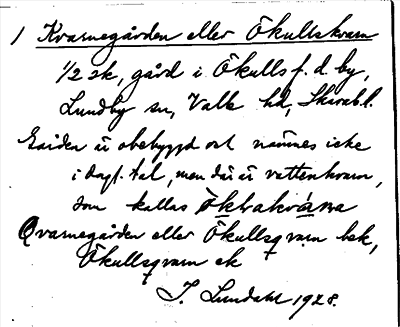 1 Kvarnegården eller Ökullskvarn
1/2 sk, gård i Ökulls f. d. by,
Lundby sn, Valle hd, Skarab.l.
Gården är obebyggd och nämnes icke
i dagl. tal, men där är vattenkvarn,
som kallas ökbakvárna
Qvarnegården eller Ökullsqvarn bsk,
Ökullsqvarn ek
I. Lundahl 1928.